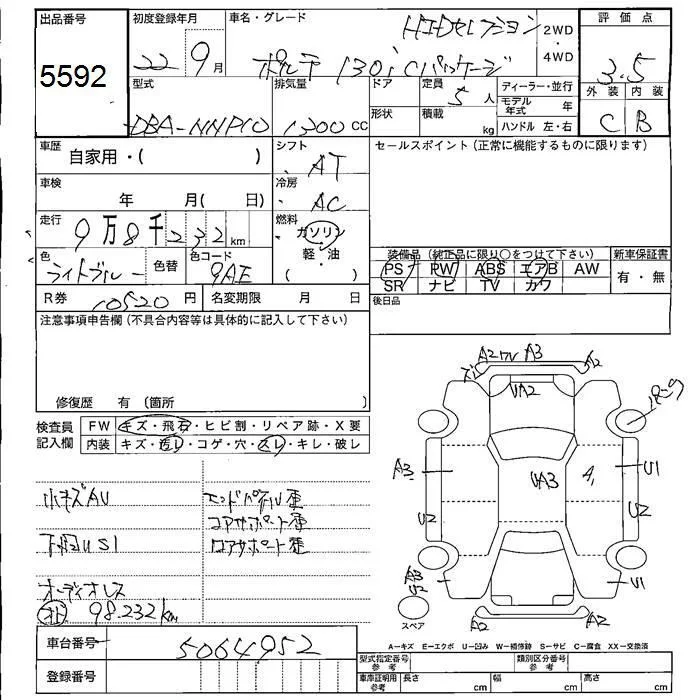 出品番号
5592
初度登録年月
22年9月
車名・グレード
HIDセレクション
ポルテ 130i Cパッケージ
2WD
・
4WD
評価点
3.5
外装 内装
C B
型式
DBA-NNP10
排気量
1300 CC
ドア
形状
定員
5人
積載
kg
ディーラー・並行
モデル年式 年
ハンドル 左・右
車歴
自家用・( )
シフト
AT
セールスポイント(正常に機能するものに限ります)
車検
年 月( 日)
冷房
AC
走行
9万8千232km
燃料
ガソリン
軽・油
( )
色
ライトブルー
色替
色コード
9AE
装備品(純正品に限り○をつけて下さい)
PS PW ABS エアB AW
SR ナビ TV カワ
新車保証書
有・無
R券 10520円
名変期限 月 日
後日品
注意事項申告欄(不具合内容等は具体的に記入して下さい)
修復歴 有(箇所
検査員
記入欄
FW キズ・飛石・ヒビ割・リペア跡・X要
内装 キズ・汚レ・コゲ・穴・スレ・キレ・破レ
小キズAU
下回りUS1
オーディオレス
98.232km
エンドパネル歪
コアサポート歪
ロアサポート歪
A2 A3
A2
UA2
A3
UA3
A1
U1
U2
U2
U1
A2
A2
スペア
A-キズ E-エクボ U-凹み W-補修跡 S-サビ C-腐食 XX-交換済
車台番号
5064952
登録番号
型式指定番号
参考
類別区分番号
参考
車庫証明用
参考
長さ cm 幅 cm 高さ cm